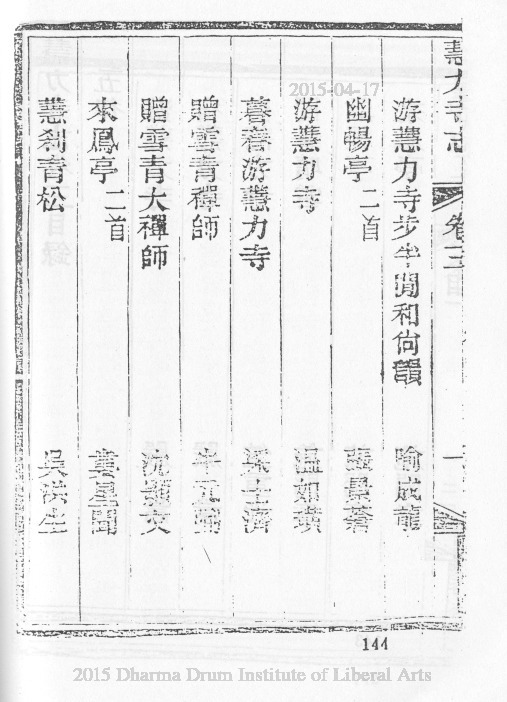 慧力寺志 卷三 一
游慧力寺步半閒和尙韻 喻成龍
幽暢亭二首 張景蒼
游慧力寺 温如璜
暮春游慧力寺 孫士
贈雪青禪師
贈雪青大禪師 沈灝文
來鳳亭二首 星聞
慧剎青松 吳洪生
2015-04-17
144
2015 Dharma Drum Institute of Liberal Arts